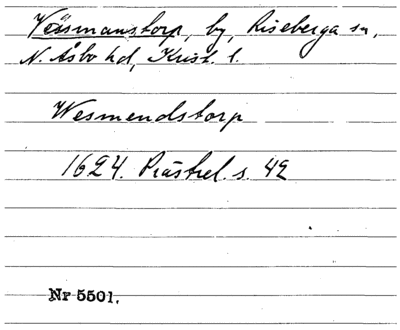 Väsmanstorp, by, Riseberga sn,
N. Åsbo hd, Krist. l.
Wesmendstorp
1624. Prästrel. s. 42
Nr 5501.